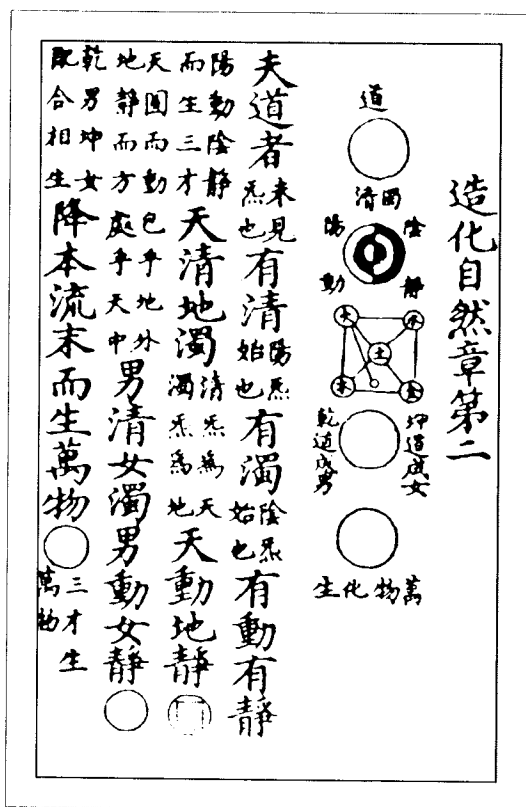 造化自然章第二
道
清
陰靜
陽動
水
火
土
金
木
坤道成女
乾道成男
萬物化生
夫道者未見炁也有清陽炁始也有濁陰炁始也有動有靜
陽動陰靜而生三才天清地濁清炁為天濁炁為地天動地靜
天圓而動包乎地外地靜而方處乎天中男清女濁男動女靜
乾男坤女配合相生降本流末而生萬物三才生萬物